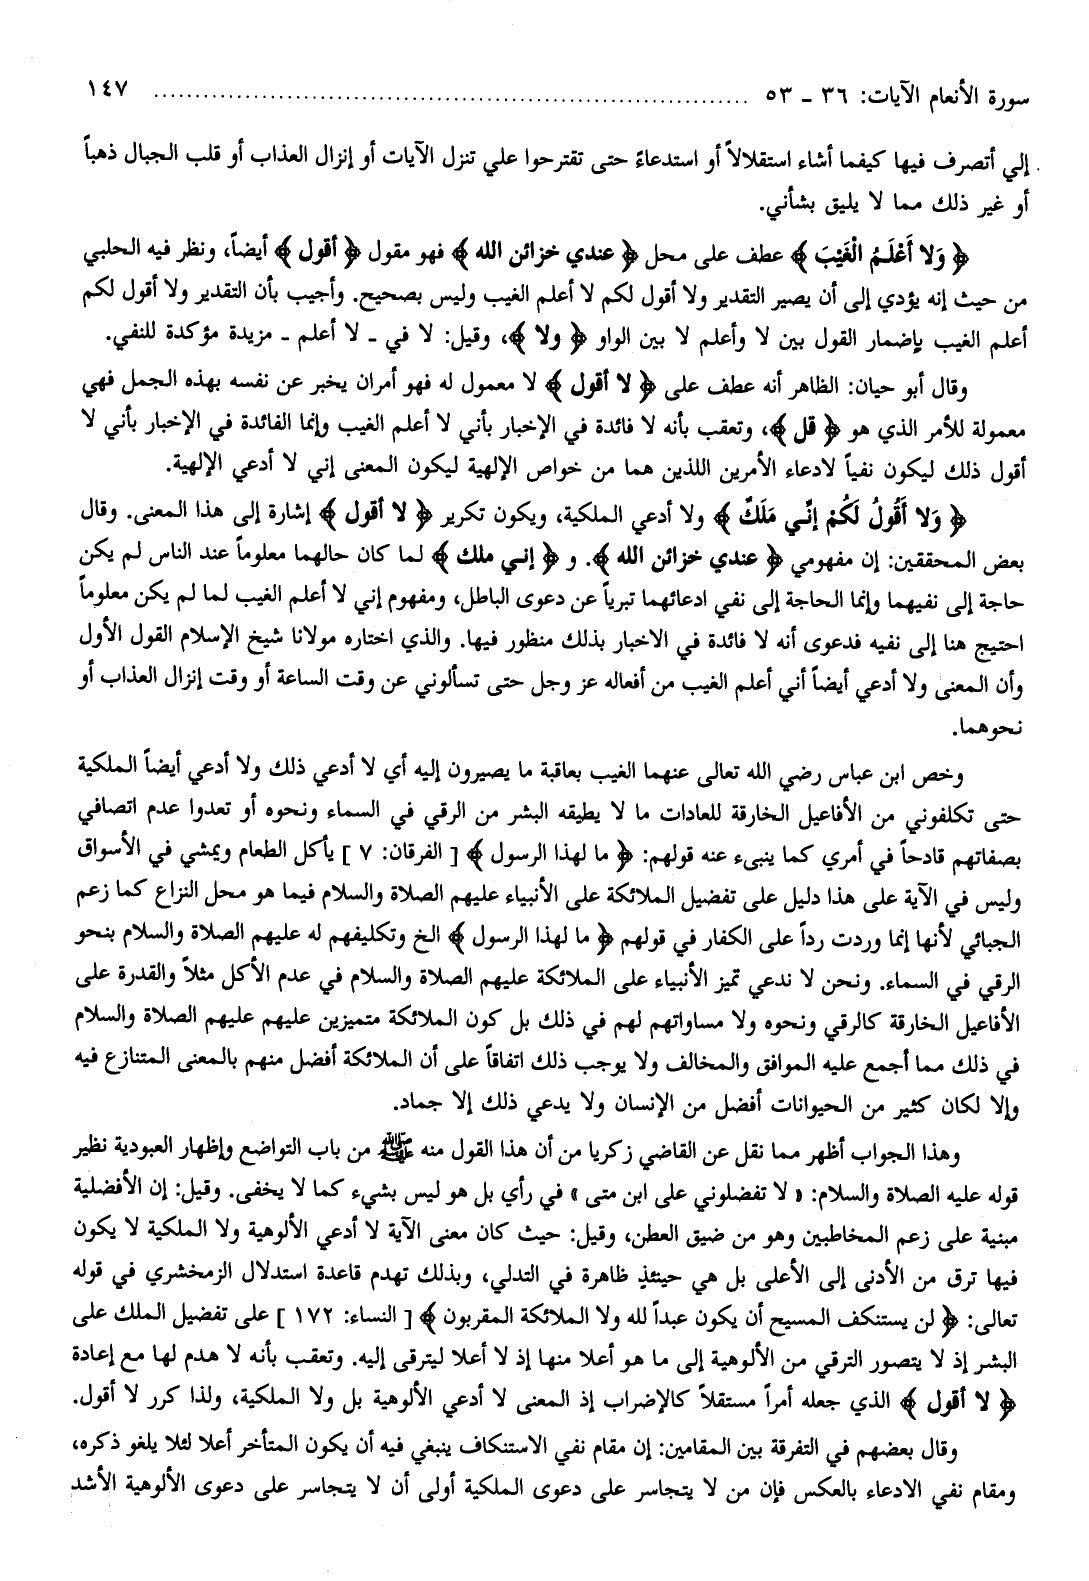 سورة الأنعام الآيات: ٣٦ ـ ٥٣ ............................................................ ١٤٧
إلي أتصرف فيها كيفما أشاء استقلالاً أو استدعاءً حتى تقترحوا علي تنزل الآيات أو إنزال العذاب أو قلب الجبال ذهباً
أو غير ذلك مما لا يليق بشأني.
﴿ وَلا أَعْلَمُ الْغَيْبَ ﴾ عطف على محل ﴿ عندي خزائن الله ﴾ فهو مقول ﴿ أقول ﴾ أيضاً، ونظر فيه الحلبي
من حيث إنه يؤدي إلى أن يصير التقدير ولا أقول لكم لا أعلم الغيب وليس بصحيح. وأجيب بأن التقدير ولا أقول لكم
أعلم الغيب بإضمار القول بين لا وأعلم لا بين الواو ﴿ ولا ﴾، وقيل: لا في ـ لا أعلم ـ مزيدة مؤكدة للنفي.
وقال أبو حيان: الظاهر أنه عطف على ﴿ لا أقول ﴾ لا معمول له فهو أمران يخبر عن نفسه بهذه الجمل فهي
معمولة للأمر الذي هو ﴿ قل ﴾، وتعقب بأنه لا فائدة في الإخبار بأني لا أعلم الغيب وإنما الفائدة في الإخبار بأني لا
أقول ذلك ليكون نفياً لادعاء الأمرين اللذين هما من خواص الإلهية ليكون المعنى إني لا أدعي الإلهية.
﴿ وَلا أَقُولُ لَكُمْ إِنِّي مَلَكٌ ﴾ ولا أدعي الملكية، ويكون تكرير ﴿ لا أقول ﴾ إشارة إلى هذا المعنى. وقال
بعض المحققين: إن مفهومي ﴿ عندي خزائن الله ﴾. و ﴿ إني ملك ﴾ لما كان حالهما معلوماً عند الناس لم يكن
حاجة إلى نفيهما وإنما الحاجة إلى نفي ادعائهما تبرياً عن دعوى الباطل، ومفهوم إني لا أعلم الغيب لما لم يكن معلوماً
احتيج هنا إلى نفيه فدعوى أنه لا فائدة في الاخبار بذلك منظور فيها. والذي اختاره مولانا شيخ الإسلام القول الأول
وأن المعنى ولا أدعي أيضاً أني أعلم الغيب من أفعاله عز وجل حتى تسألوني عن وقت الساعة أو وقت إنزال العذاب أو
نحوهما.
وخص ابن عباس رضي الله تعالى عنهما الغيب بعاقبة ما يصيرون إليه أي لا أدعي ذلك ولا أدعي أيضاً الملكية
حتى تكلفوني من الأفاعيل الخارقة للعادات ما لا يطيقه البشر من الرقي في السماء ونحوه أو تعدوا عدم اتصافي
بصفاتهم قادحاً في أمري كما ينبىء عنه قولهم: ﴿ ما لهذا الرسول ﴾ [ الفرقان: ٧ ] يأكل الطعام ويمشي في الأسواق
وليس في الآية على هذا دليل على تفضيل الملائكة على الأنبياء عليهم الصلاة والسلام فيما هو محل النزاع كما زعم
الجبائي لأنها إنما وردت رداً على الكفار في قولهم ﴿ ما لهذا الرسول ﴾ الخ وتكليفهم له عليهم الصلاة والسلام بنحو
الرقي في السماء. ونحن لا ندعي تميز الأنبياء على الملائكة عليهم الصلاة والسلام في عدم الأكل مثلاً والقدرة على
الأفاعيل الخارقة كالرقي ونحوه ولا مساواتهم لهم في ذلك بل كون الملائكة متميزين عليهم عليهم الصلاة والسلام
في ذلك مما أجمع عليه الموافق والمخالف ولا يوجب ذلك اتفاقاً على أن الملائكة أفضل منهم بالمعنى المتنازع فيه
وإلا لكان كثير من الحيوانات أفضل من الإنسان ولا يدعي ذلك إلا جماد.
وهذا الجواب أظهر مما نقل عن القاضي زكريا من أن هذا القول منه ﷺ من باب التواضع وإظهار العبودية نظير
قوله عليه الصلاة والسلام: « لا تفضلوني على ابن متى » في رأي بل هو ليس بشيء كما لا يخفى. وقيل: إن الأفضلية
مبنية على زعم المخاطبين وهو من ضيق العطن، وقيل: حيث كان معنى الآية لا أدعي الألوهية ولا الملكية لا يكون
فيها ترق من الأدنى إلى الأعلى بل هي حينئذٍ ظاهرة في التدلي، وبذلك تهدم قاعدة استدلال الزمخشري في قوله
تعالى: ﴿ لن يستنكف المسيح أن يكون عبداً لله ولا الملائكة المقربون ﴾ [ النساء: ١٧٢ ] على تفضيل الملك على
البشر إذ لا يتصور الترقي من الألوهية إلى ما هو أعلا منها إذ لا أعلا ليترقى إليه. وتعقب بأنه لا هدم لها مع إعادة
﴿ لا أقول ﴾ الذي جعله أمراً مستقلاً كالإضراب إذ المعنى لا أدعي الألوهية بل ولا الملكية، ولذا كرر لا أقول.
وقال بعضهم في التفرقة بين المقامين: إن مقام نفي الاستنكاف ينبغي فيه أن يكون المتأخر أعلا لئلا يلغو ذكره،
ومقام نفي الادعاء بالعكس فإن من لا يتجاسر على دعوى الملكية أولى أن لا يتجاسر على دعوى الألوهية الأشد